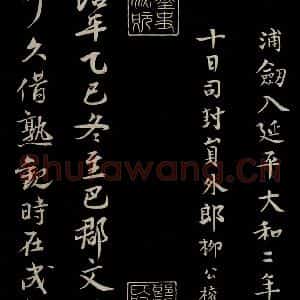 浦劔入延平大和二年
十日司封員外郎柳公權
年乙巳冬至巴郡文
久借熟觀時在成
Shufawang.cn